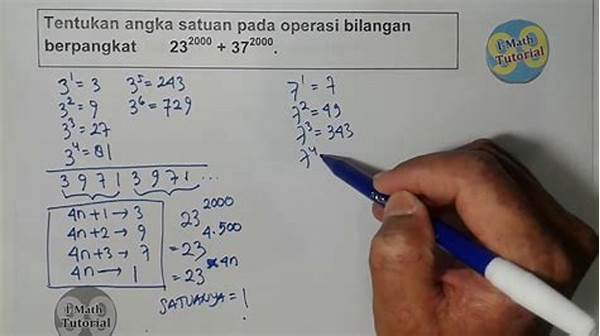 Tentukan angka satuan pada operasi bilangan
berpangkat 23²⁰⁰⁰ + 37²⁰⁰⁰.
i Math
Tutorial
3¹ = 3 3⁵ = 243
3² = 9 3⁶ = 729
3³ = 27
3⁴ = 81
3 9 7 1 3 9 7 1 ...
4n+1 → 3
4n+2 → 9
4n+3 → 7
4n → 1
23²⁰⁰⁰
= 23⁴·⁵⁰⁰
= 23⁴ⁿ
SATUANYA = 1
7¹ = 7
7² = 49
7³ = 343
7⁴
i Math
Tutorial